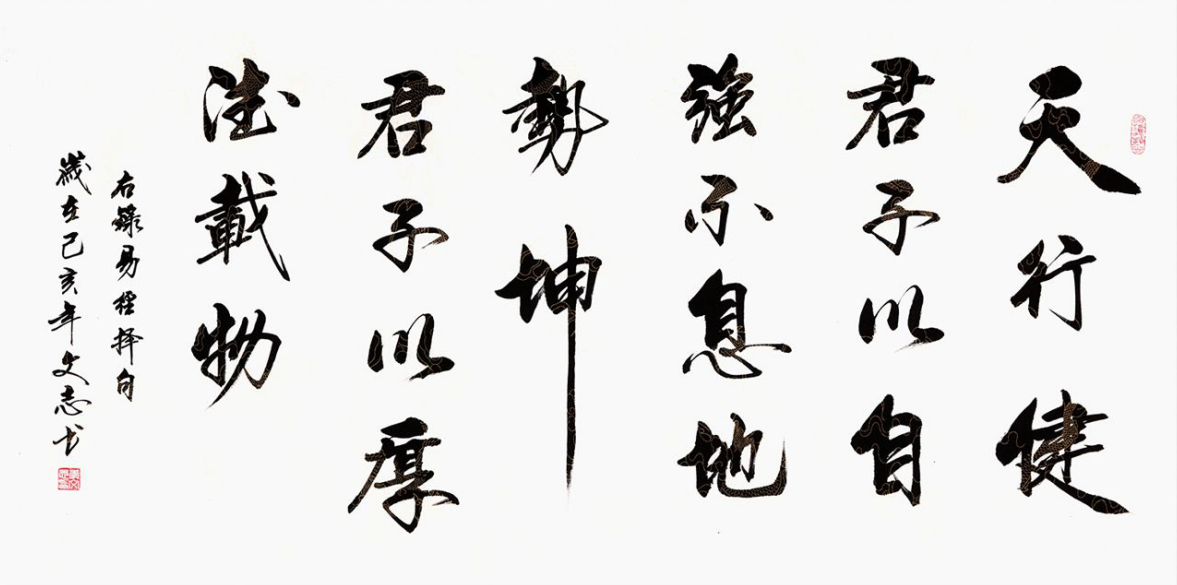 天行健
君子以自
強不息地
勢坤
君子以厚
德載物
右錄易經择句
歲在己亥年文志书